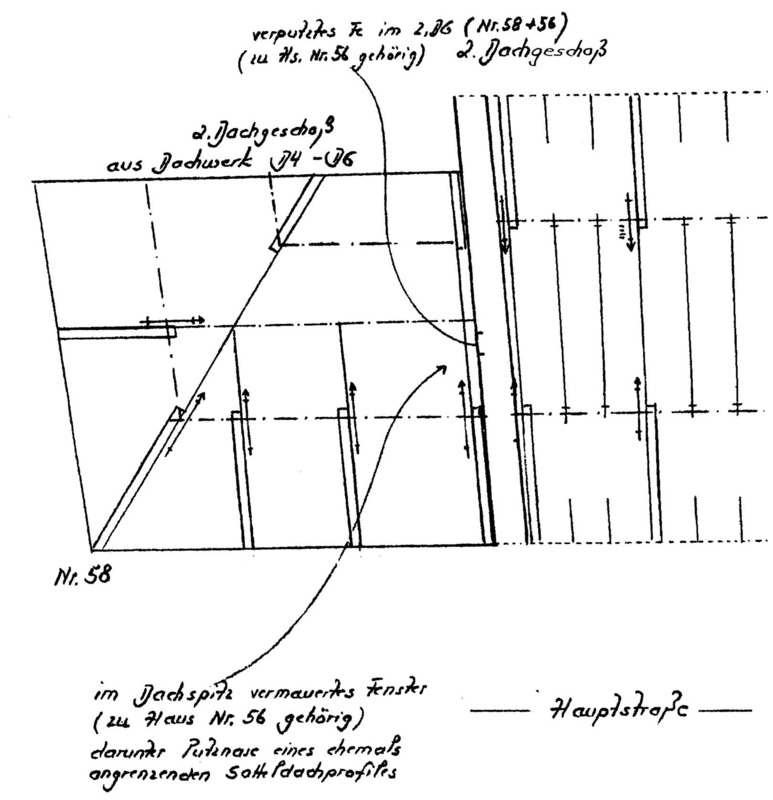 verputztes Fe im 2,DG (Nr.58+56)
(zu Hs. Nr.56 gehörig) 2. Dachgeschoß
2. Dachgeschoß
aus Dachwerk D4 - D6
Nr. 58
im Dachspitz vermauertes Fenster
(zu Haus Nr. 56 gehörig)
darunter Putznase eines ehemals
angrenzenden Satteldachprofiles
Hauptstraße